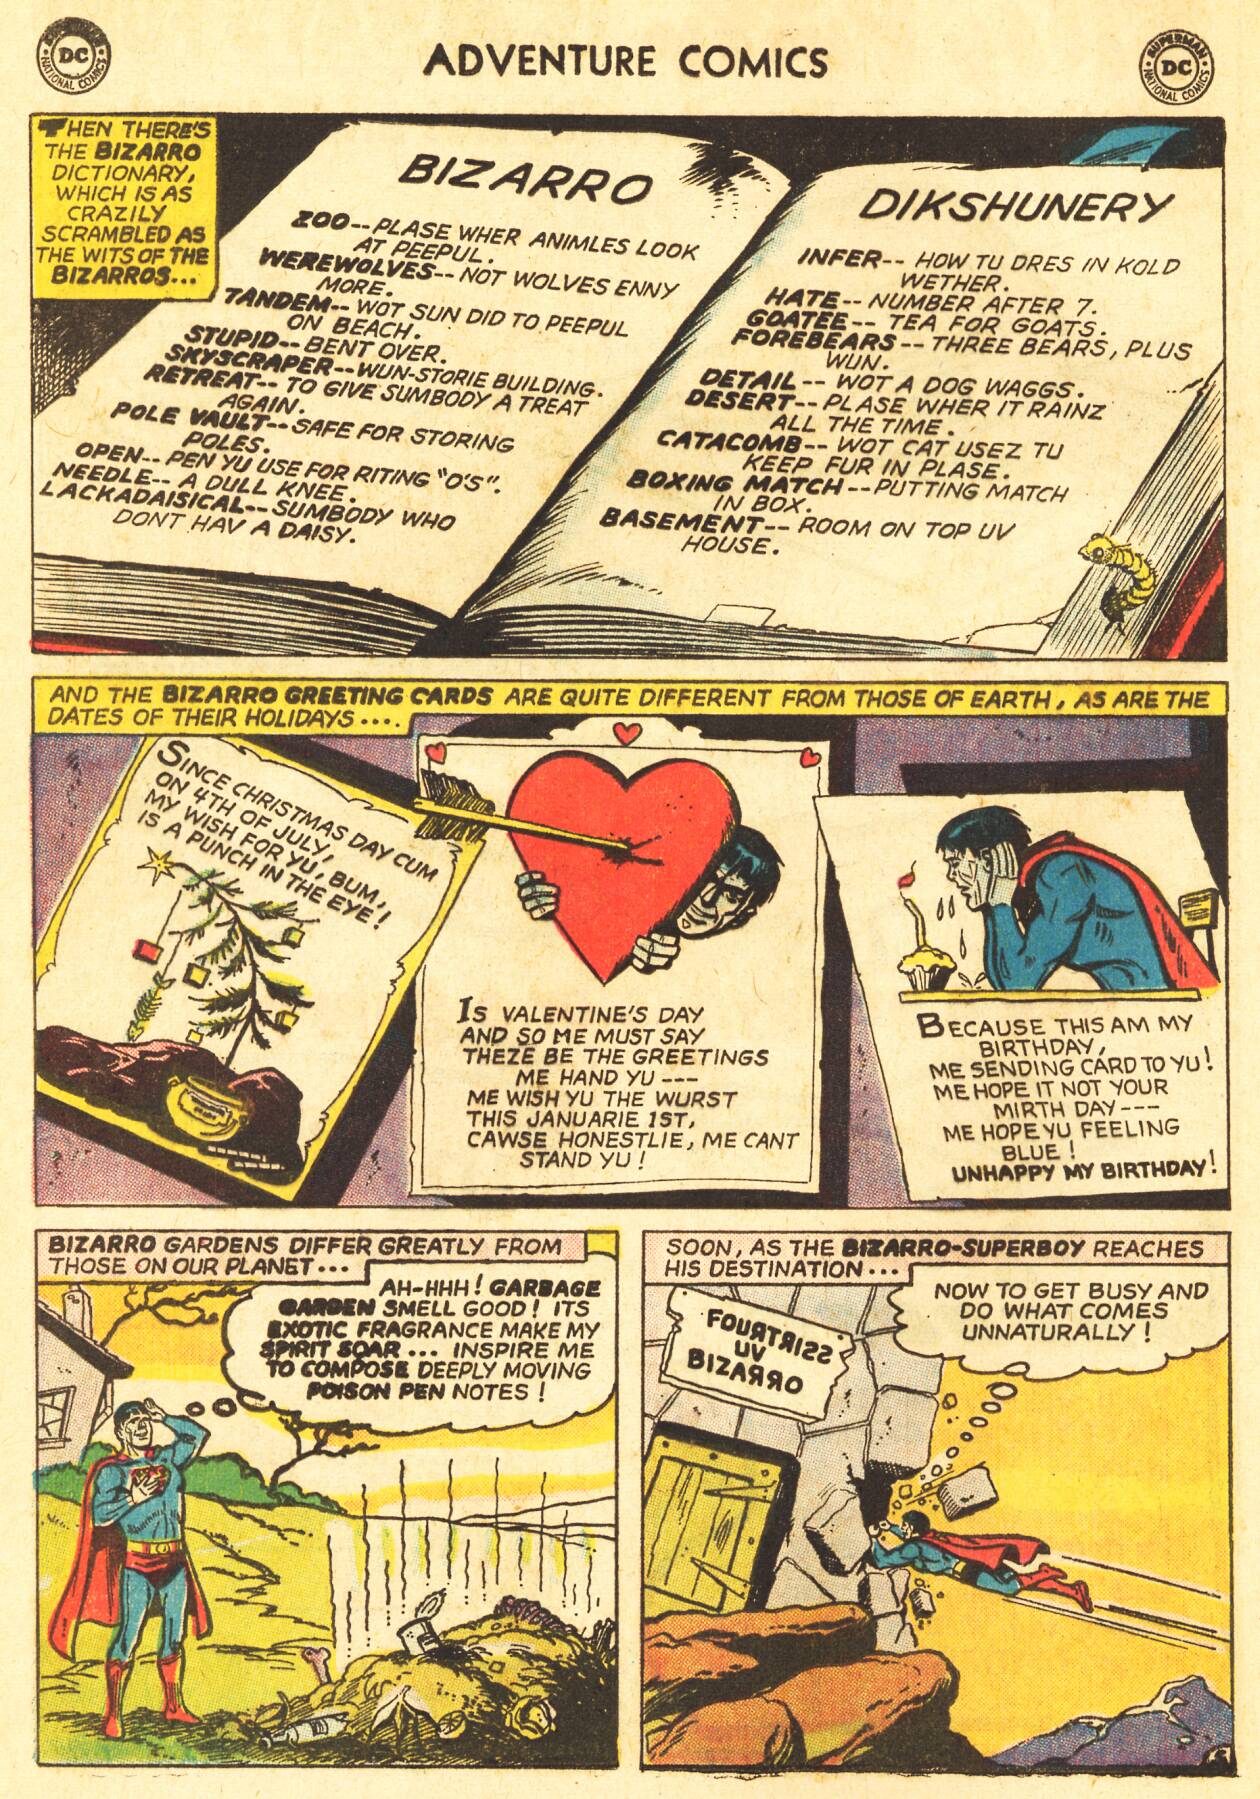 SUPERMAN
DC
NATIONAL COMICS
ADVENTURE COMICS
SUPERMAN
DC
NATIONAL COMICS
THEN THERE'S
THE BIZARRO
DICTIONARY,
WHICH IS AS
CRAZILY
SCRAMBLED AS
THE WITS OF THE
BIZARROS...
BIZARRO
ZOO--PLASE WHER ANIMLES LOOK
AT PEEPUL.
WEREWOLVES--NOT WOLVES ENNY
MORE.
TANDEM--WOT SUN DID TO PEEPUL
ON BEACH.
STUPID--BENT OVER.
SKYSCRAPER--WUN-STORIE BUILDING.
RETREAT--TO GIVE SUMBODY A TREAT
AGAIN.
POLE VAULT--SAFE FOR STORING
POLES.
OPEN--PEN YU USE FOR RITING "O'S".
NEEDLE--A DULL KNEE.
LACKADAISICAL--SUMBODY WHO
DONT HAV A DAISY.
DIKSHUNERY
INFER--HOW TU DRES IN KOLD
WETHER.
HATE--NUMBER AFTER 7.
GOATEE--TEA FOR GOATS.
FOREBEARS--THREE BEARS, PLUS
WUN.
DETAIL--WOT A DOG WAGGS.
DESERT--PLASE WHER IT RAINZ
ALL THE TIME.
CATACOMB--WOT CAT USEZ TU
KEEP FUR IN PLASE.
BOXING MATCH--PUTTING MATCH
IN BOX.
BASEMENT--ROOM ON TOP UV
HOUSE.
AND THE BIZARRO GREETING CARDS ARE QUITE DIFFERENT FROM THOSE OF EARTH, AS ARE THE
DATES OF THEIR HOLIDAYS....
SINCE CHRISTMAS DAY CUM
ON 4TH OF JULY,
MY WISH FOR YU, BUM,
IS A PUNCH IN THE EYE!
IS VALENTINE'S DAY
AND SO ME MUST SAY
THEZE BE THE GREETINGS
ME HAND YU---
ME WISH YU THE WURST
THIS JANUARIE 1ST,
CAWSE HONESTLIE, ME CANT
STAND YU!
BECAUSE THIS AM MY
BIRTHDAY,
ME SENDING CARD TO YU!
ME HOPE IT NOT YOUR
MIRTH DAY---
ME HOPE YU FEELING
BLUE!
UNHAPPY MY BIRTHDAY!
BIZARRO GARDENS DIFFER GREATLY FROM
THOSE ON OUR PLANET...
AH-HHH! GARBAGE
GARDEN SMELL GOOD! ITS
EXOTIC FRAGRANCE MAKE MY
SPIRIT SOAR... INSPIRE ME
TO COMPOSE DEEPLY MOVING
POISON PEN NOTES!
SOON, AS THE BIZARRO-SUPERBOY REACHES
HIS DESTINATION...
NOW TO GET BUSY AND
DO WHAT COMES
UNNATURALLY!
FOURTRISS
UV
BIZARRO